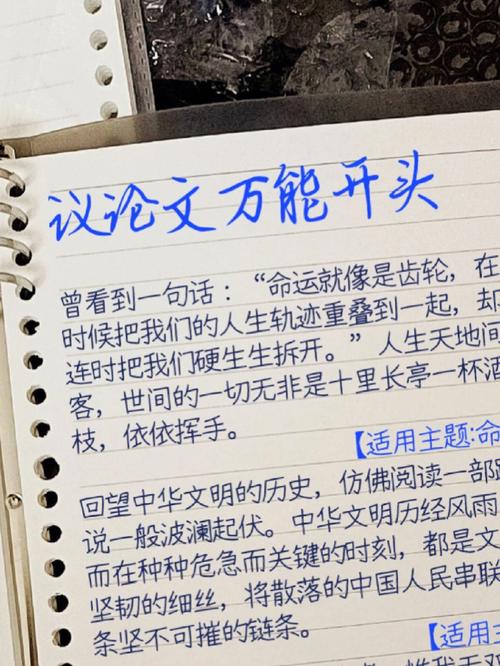 议论文万能开头
曾看到一句话：“命运就像是齿轮，在
时候把我们的人生轨迹重叠到一起，却
连时把我们硬生生拆开。”人生天地间
客，世间的一切无非是十里长亭一杯酒
枝，依依挥手。
【适用主题：命
回望中华文明的历史，仿佛阅读一部
说一般波澜起伏。中华文明历经风雨
而在种种危急而关键的时刻，都是文
坚韧的细丝，将散落的中国人民串联
条坚不可摧的链条。
【适用主